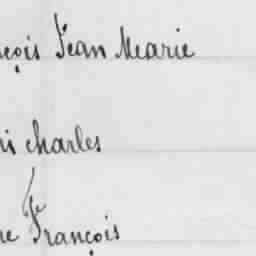 çois Jean Marie
is charles
ne François